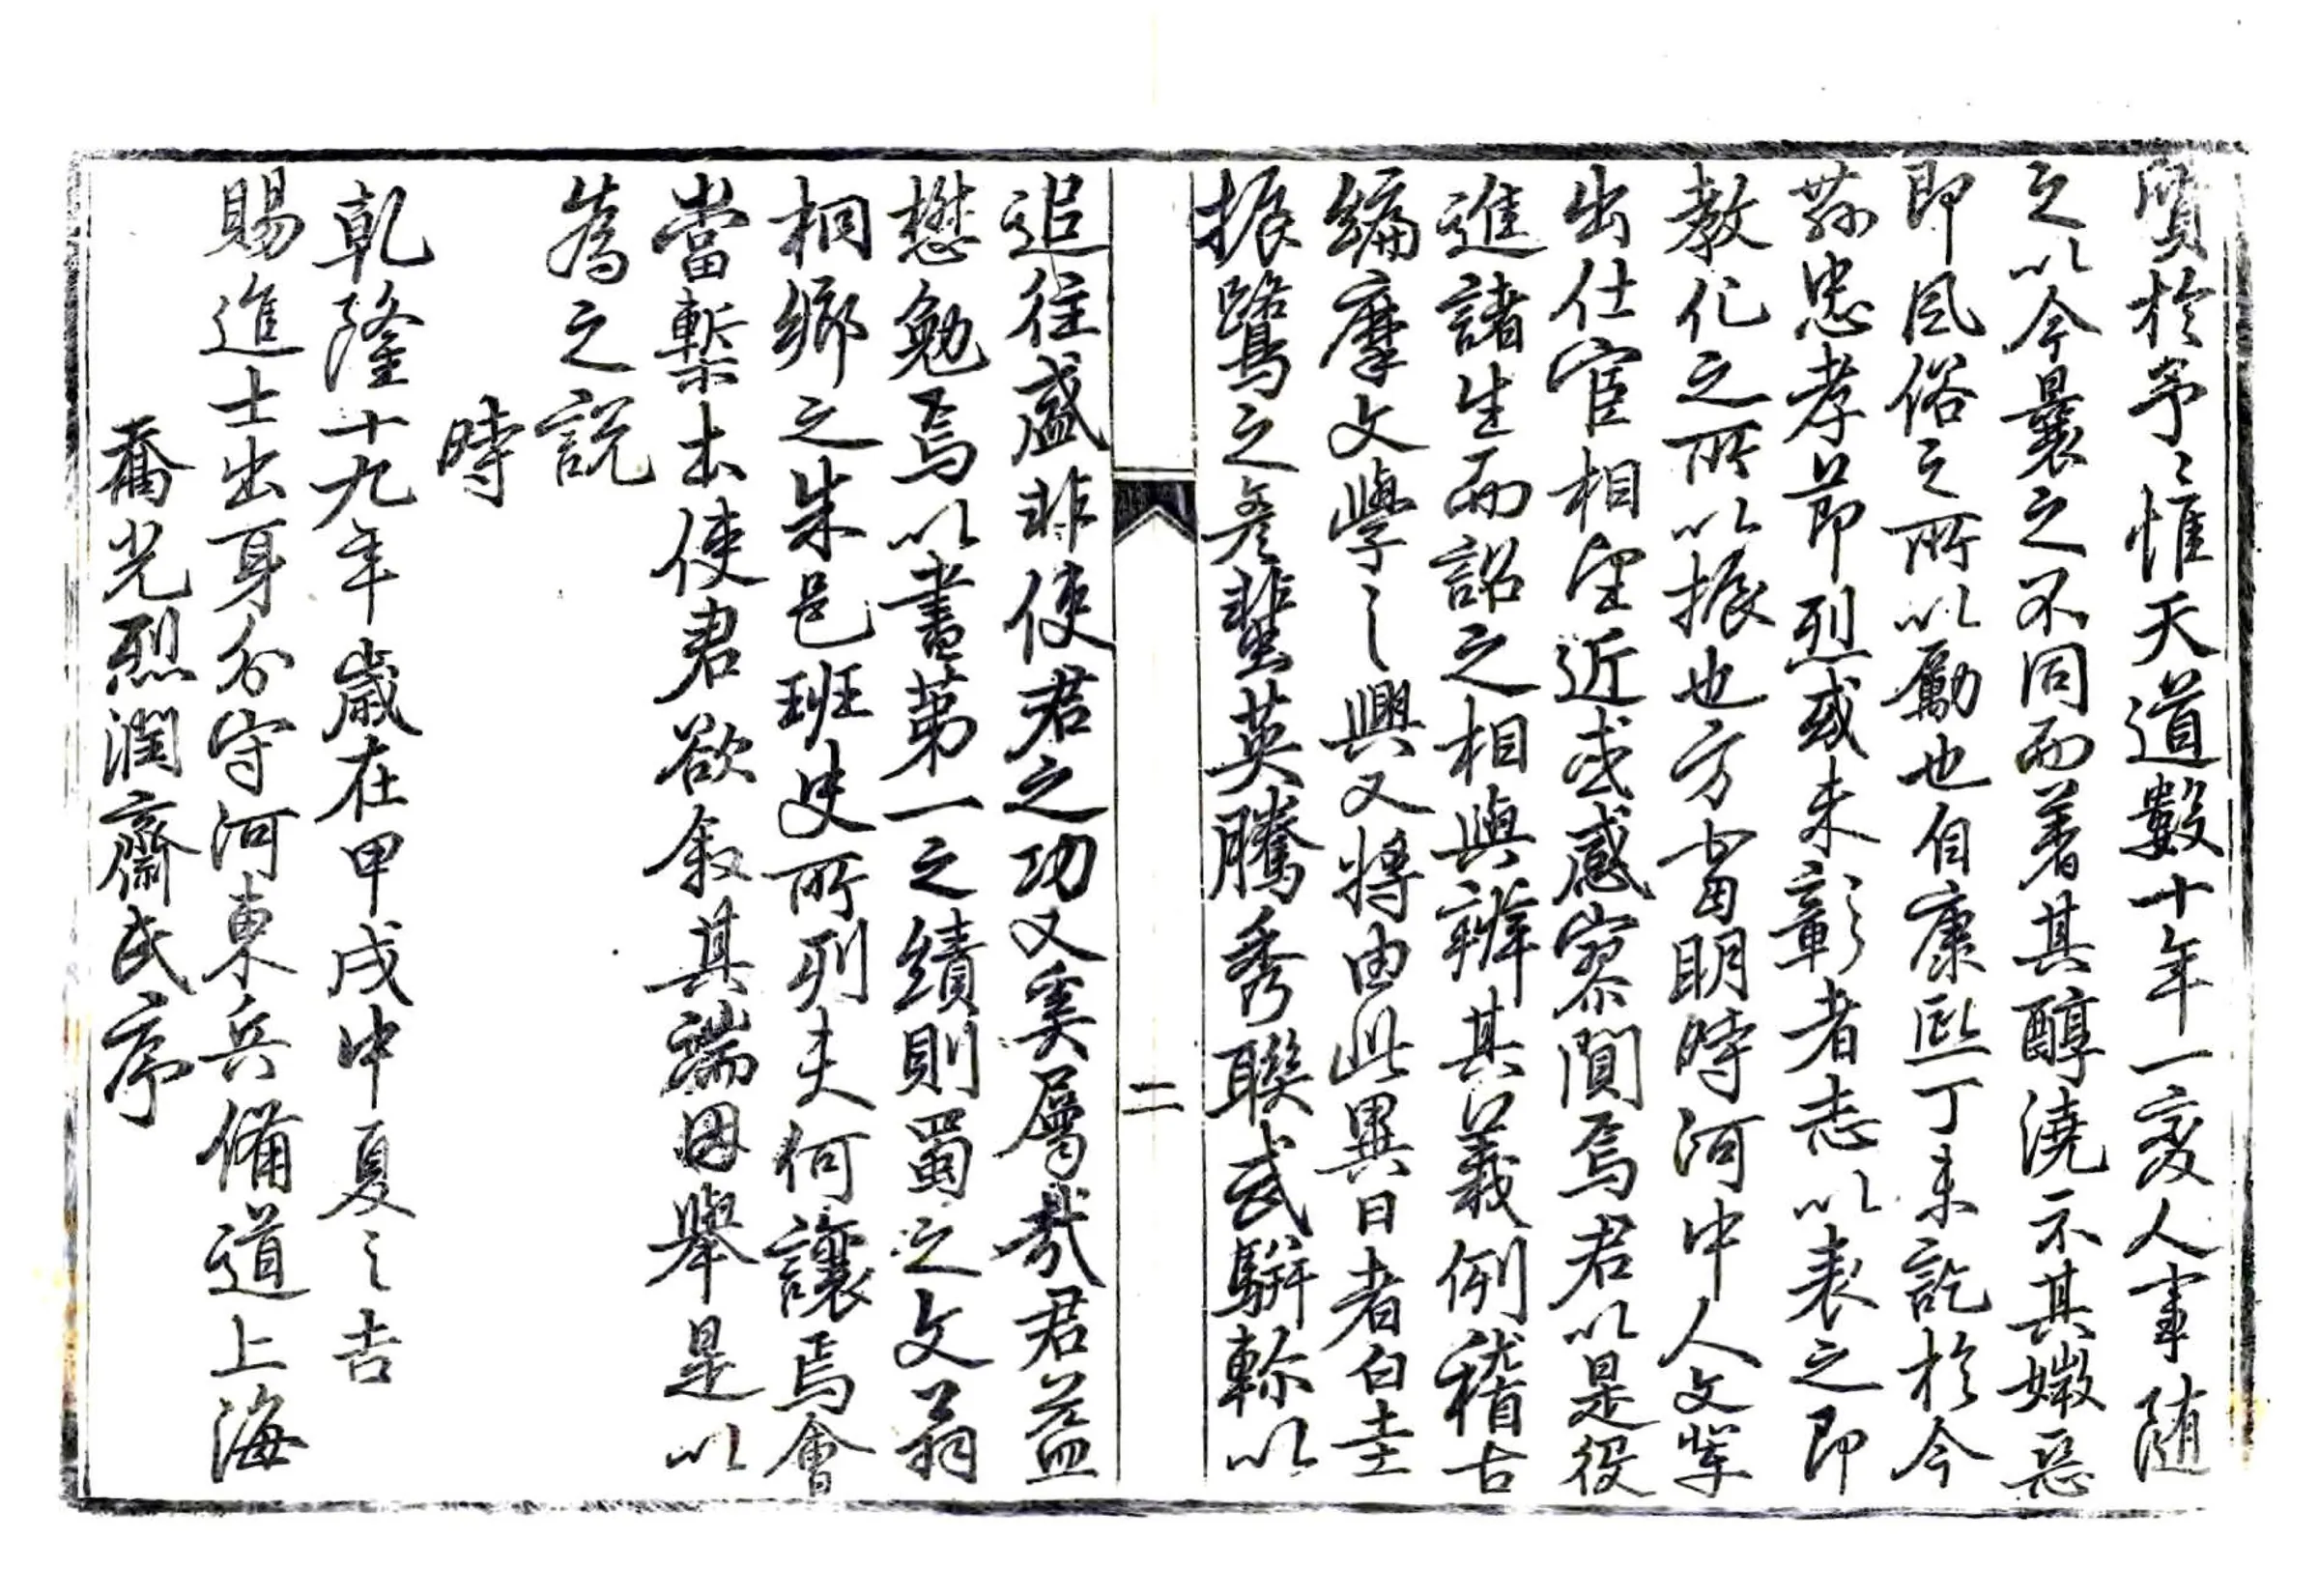 質於予〻惟天道數十年一変人事随
之以今曩之不同而著其醇澆示其媺惡
即風俗之所以勵也自康熙丁未訖於今
茲忠孝節烈或未彰者志以表之即
教化之所以振也方當明時河中人文輩
出仕宦相望近或感寥閴焉君以是役
進諸生而詔之相與辨其義例稽古
編摩文學之興又將由此異日者白圭
振鷺之彥蜚英騰秀聯武駢軫以
二
追往盛非使君之功又奚屬哉君益
懋勉焉以書第一之績則蜀之文翁
桐鄉之朱邑班史所列夫何讓焉會
當槧出使君欲叙其端因舉是以
為之說
時
乾隆十九年歲在甲戌中夏之吉
賜進士出身分守河東兵備道上海
喬光烈潤齋氏序